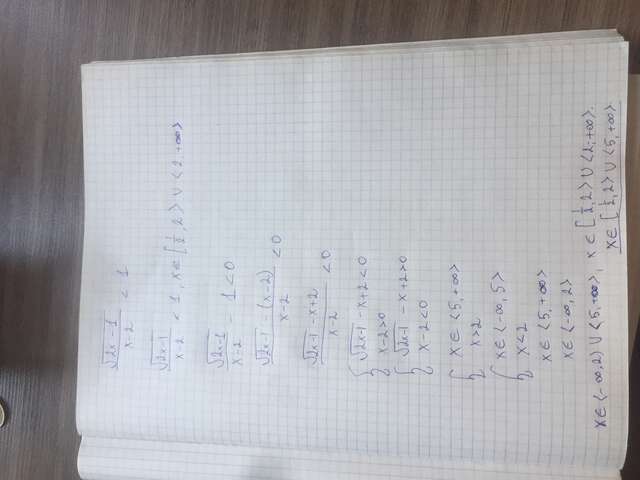 √(2x-1)/(x-2) < 1
√(2x-1)/(x-2) < 1, x∈[1/2, 2> ∪ <2, +∞>
√(2x-1)/(x-2) - 1 < 0
(√(2x-1) - (x-2))/(x-2) < 0
(√(2x-1) - x+2)/(x-2) < 0
{ √(2x-1) - x+2 < 0
x-2>0
{ √(2x-1) - x+2>0
x-2<0
{ x∈<5, +∞>
x>2
{ x∈<-∞, 5>
x<2
x∈<5, +∞>
x∈<-∞, 2>
x∈<-∞, 2) ∪ <5, +∞>, x∈[1/2, 2> ∪ <2, +∞>.
x∈[1/2, 2> ∪ <5, +∞>